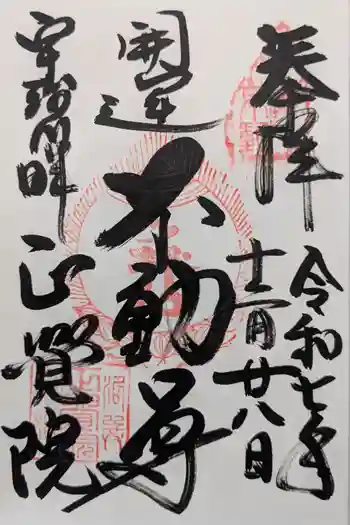 奉拝
令和七年
十二月廿八日
開運
不動尊
正覚院